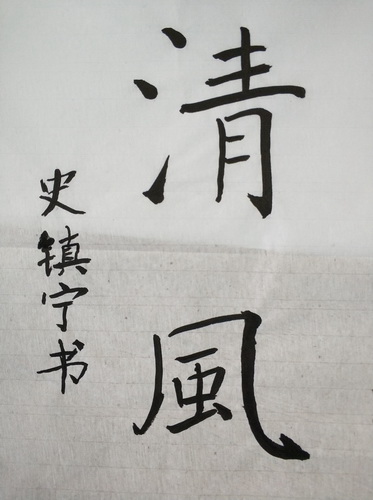 清風
史镇宁书